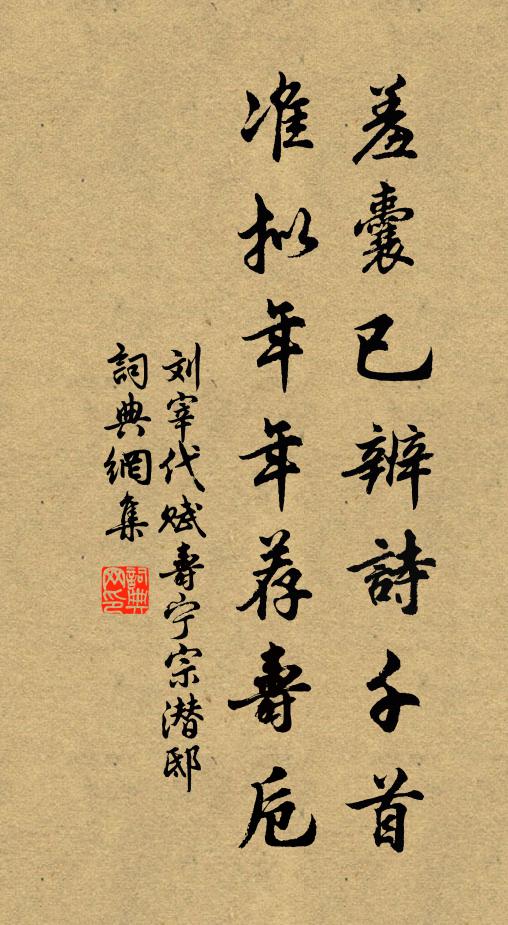 羞囊已辨詩千首
准拟年年荐壽卮
刘宰代赋壽宁宗潜邸
詞典網集
詞典網印